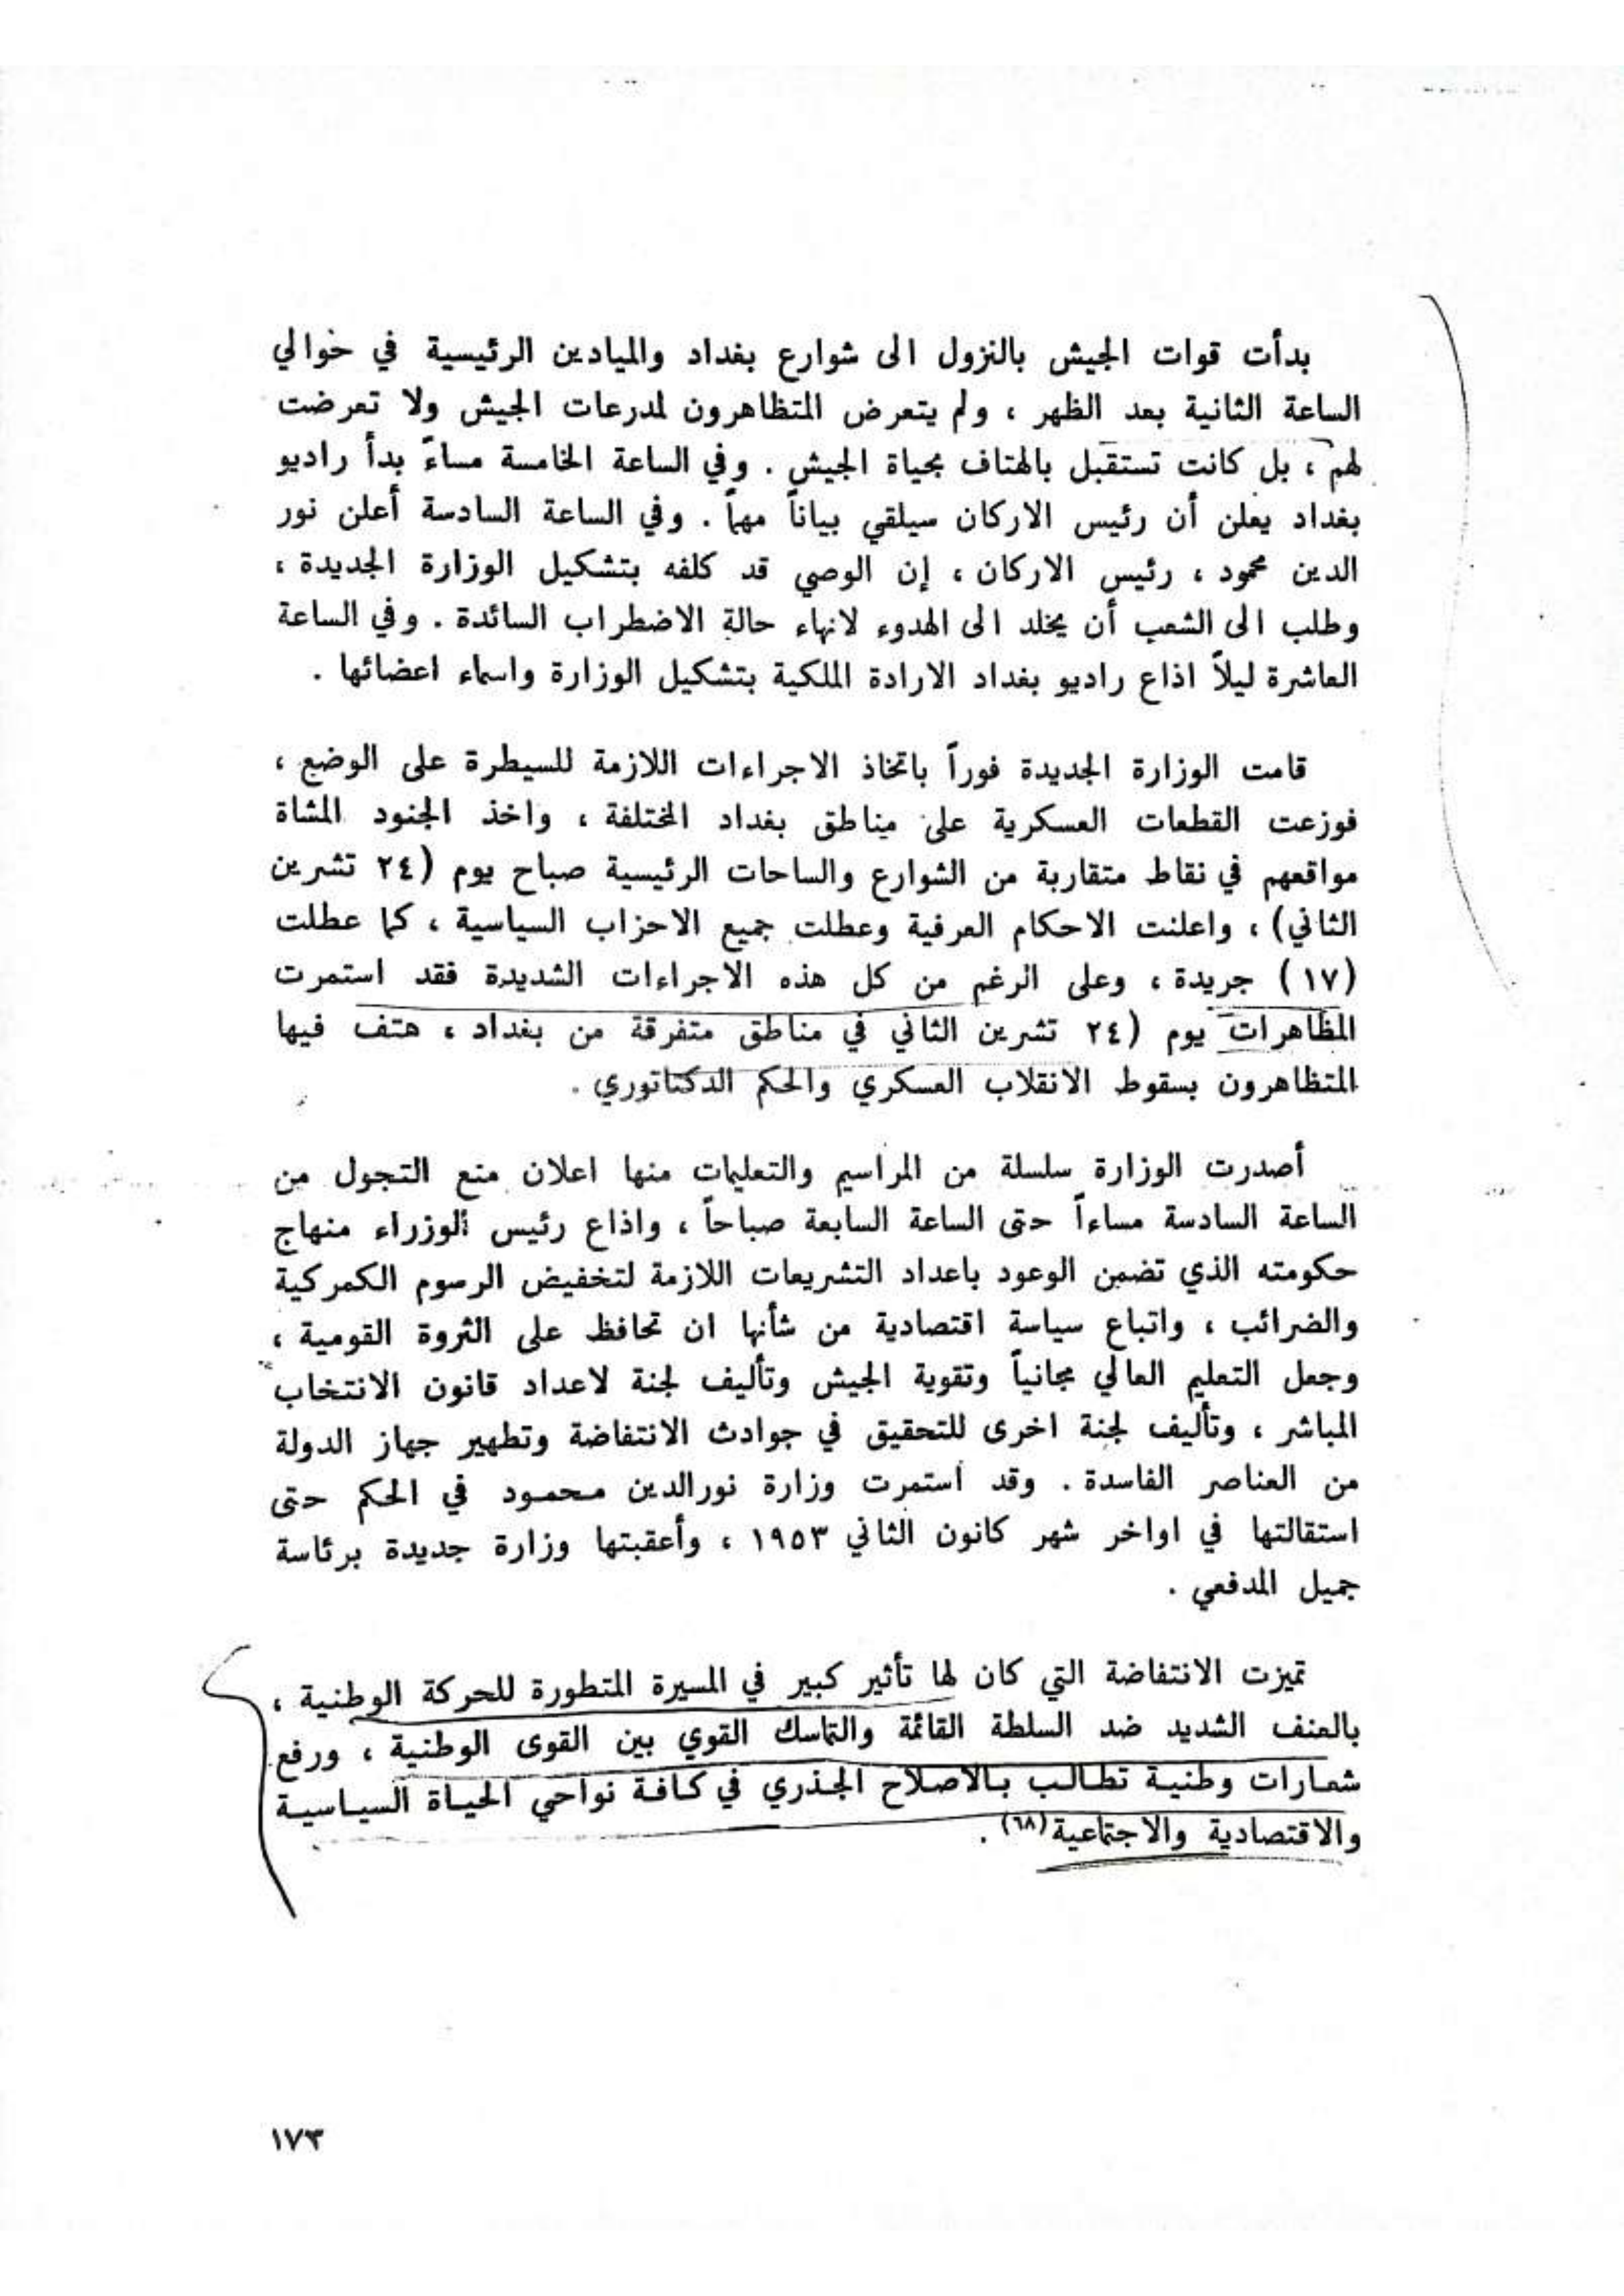 بدأت قوات الجيش بالنزول الى شوارع بغداد والميادين الرئيسية في حوالي
الساعة الثانية بعد الظهر ، ولم يتعرض المتظاهرون لمدرعات الجيش ولا تعرضت
لهم ، بل كانت تستقبل بالهتاف بحياة الجيش . وفي الساعة الخامسة مساءً بدأ راديو
بغداد يعلن أن رئيس الاركان سيلقي بياناً مهماً . وفي الساعة السادسة أعلن نور
الدين محمود ، رئيس الاركان ، إن الوصي قد كلفه بتشكيل الوزارة الجديدة ،
وطلب الى الشعب أن يخلد الى الهدوء لانهاء حالة الاضطراب السائدة . وفي الساعة
العاشرة ليلاً اذاع راديو بغداد الارادة الملكية بتشكيل الوزارة واسماء اعضائها .
قامت الوزارة الجديدة فوراً باتخاذ الاجراءات اللازمة للسيطرة على الوضع ،
فوزعت القطعات العسكرية على مناطق بغداد المختلفة ، واخذ الجنود المشاة
مواقعهم في نقاط متقاربة من الشوارع والساحات الرئيسية صباح يوم (٢٤ تشرين
الثاني) ، واعلنت الاحكام العرفية وعطلت جميع الاحزاب السياسية ، كما عطلت
(١٧) جريدة ، وعلى الرغم من كل هذه الاجراءات الشديدة فقد استمرت
المظاهرات يوم (٢٤ تشرين الثاني في مناطق متفرقة من بغداد ، هتف فيها
المتظاهرون بسقوط الانقلاب العسكري والحكم الدكتاتوري .
أصدرت الوزارة سلسلة من المراسيم والتعليمات منها اعلان منع التجول من
الساعة السادسة مساءاً حتى الساعة السابعة صباحاً ، واذاع رئيس الوزراء منهاج
حكومته الذي تضمن الوعود باعداد التشريعات اللازمة لتخفيض الرسوم الكمركية
والضرائب ، واتباع سياسة اقتصادية من شأنها ان تحافظ على الثروة القومية ،
وجعل التعليم العالي مجانياً وتقوية الجيش وتأليف لجنة لاعداد قانون الانتخاب
المباشر ، وتأليف لجنة اخرى للتحقيق في حوادث الانتفاضة وتطهير جهاز الدولة
من العناصر الفاسدة . وقد استمرت وزارة نورالدين محمود في الحكم حتى
استقالتها في اواخر شهر كانون الثاني ١٩٥٣ ، وأعقبتها وزارة جديدة برئاسة
جميل المدفعي .
تميزت الانتفاضة التي كان لها تأثير كبير في المسيرة المتطورة للحركة الوطنية ،
بالعنف الشديد ضد السلطة القائمة والتماسك القوي بين القوى الوطنية ، ورفع
شعارات وطنية تطالب بالاصلاح الجذري في كافة نواحي الحياة السياسية
والاقتصادية والاجتماعية(٦٨) .
١٧٣